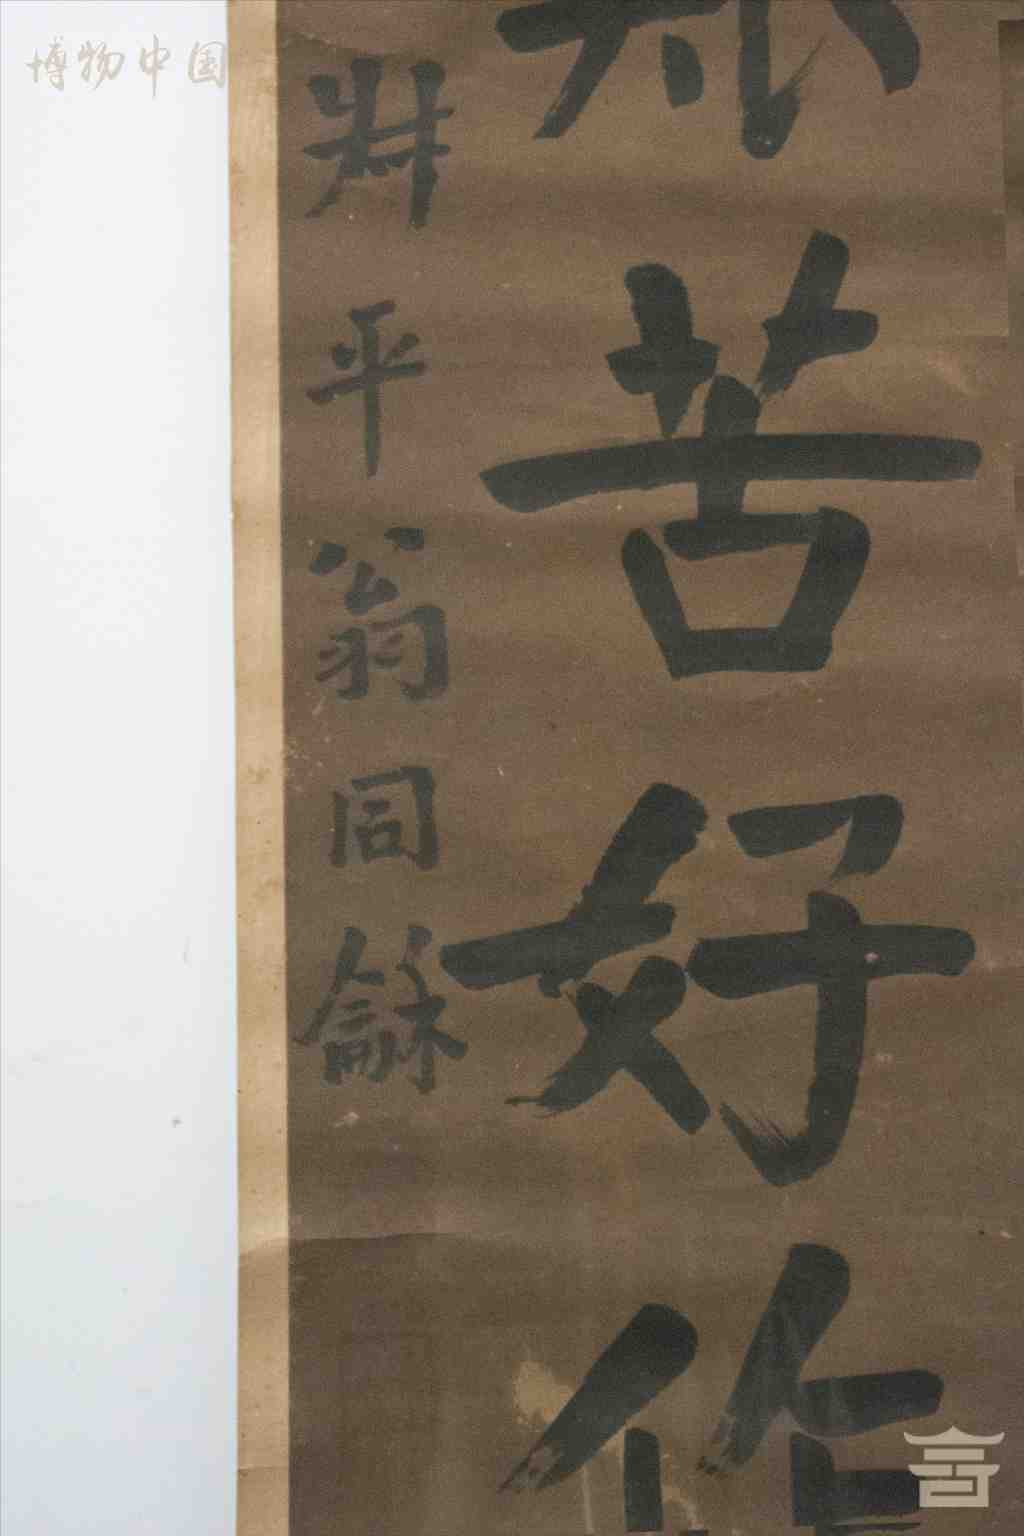 博物中国
苦好作
叔平翁同龢